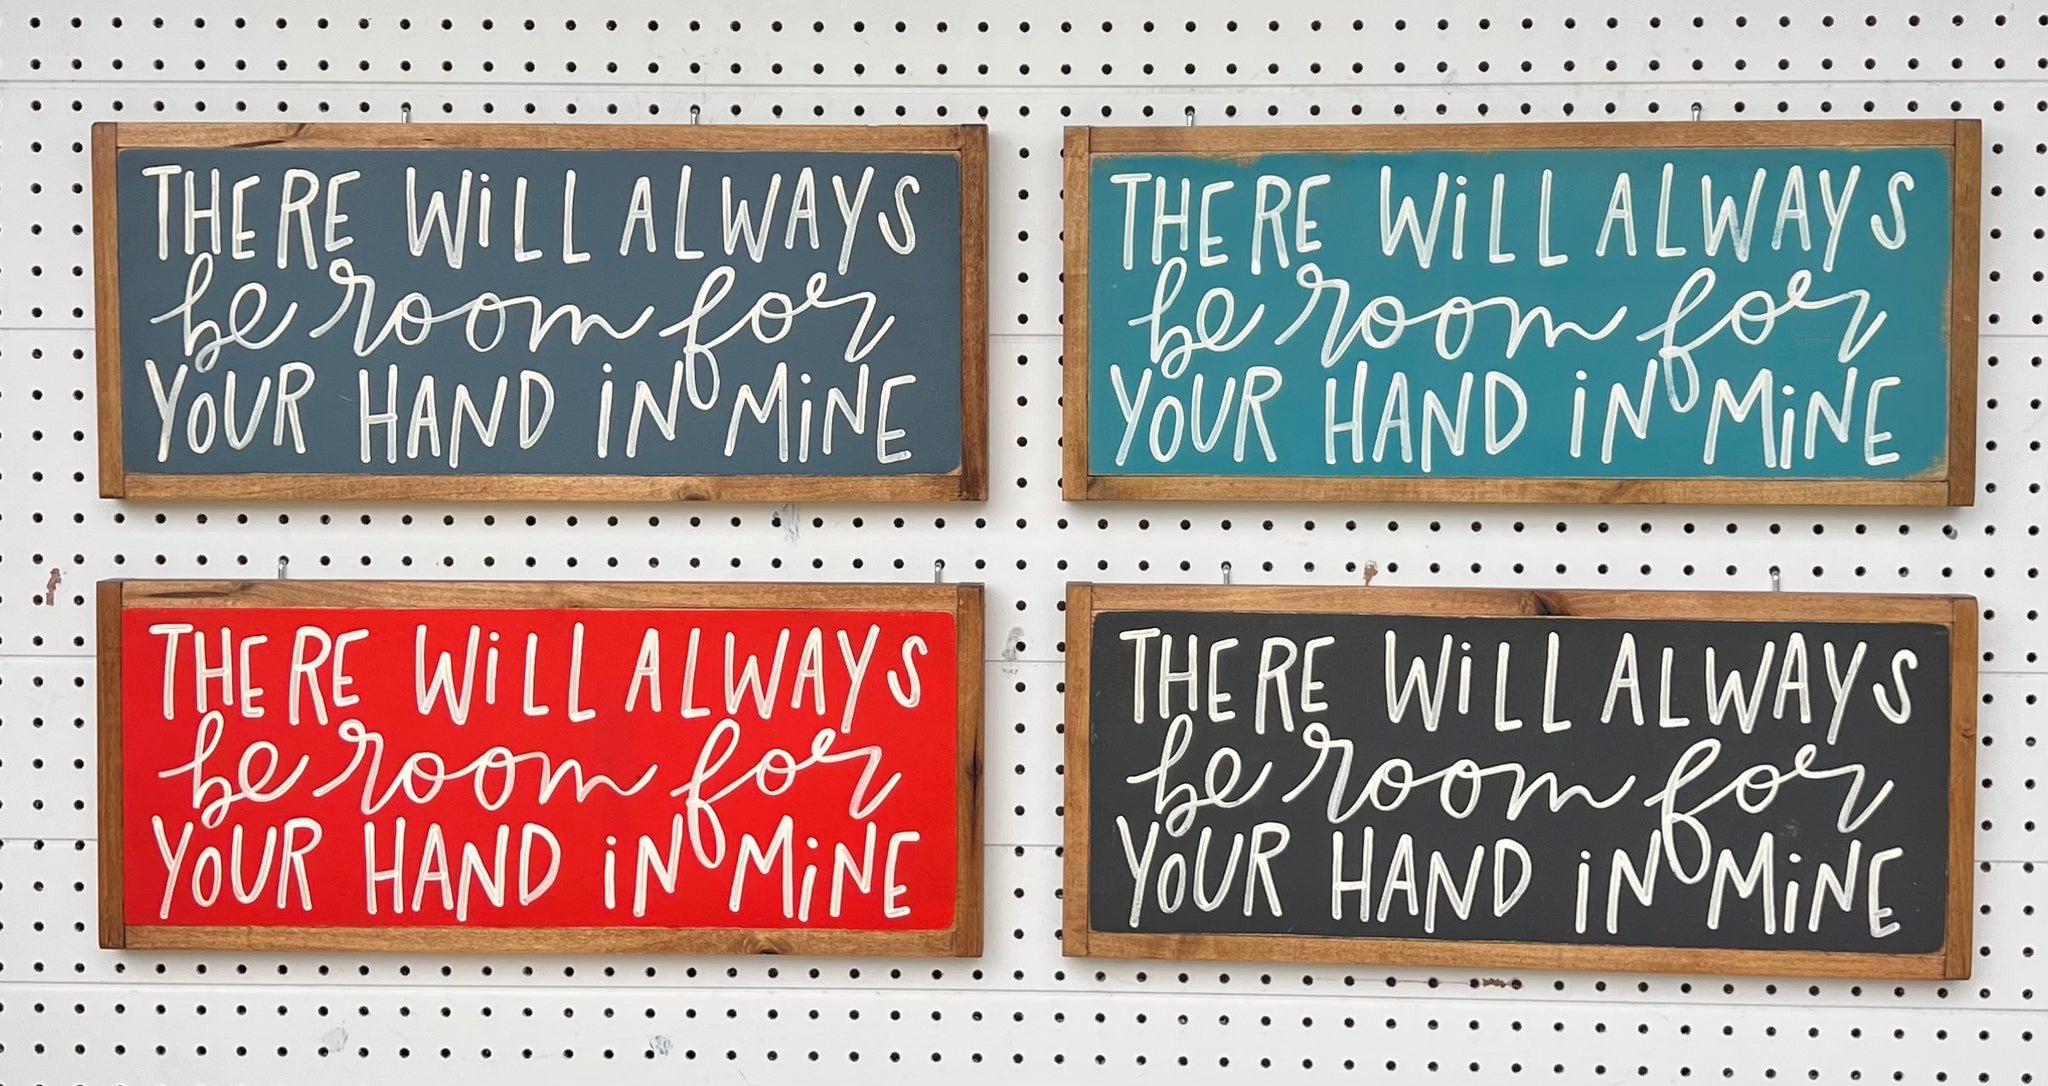 THERE WiLL ALWAYS
be room for
YOUR HAND iN MiNE
THERE WiLL ALWAYS
be room for
YOUR HAND iN MiNE
THERE WiLL ALWAYS
be room for
YOUR HAND iN MiNE
THERE WiLL ALWAYS
be room for
YOUR HAND iN MiNE